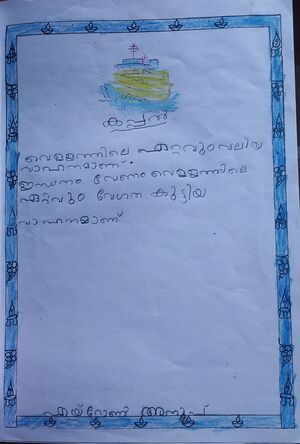 കപ്പൽ
വെള്ളത്തിലെ ഏറ്റവും വലിയ
വാഹനമാണ്.
ഇന്ധനം വേണം വെള്ളത്തിലെ
ഏറ്റവും വേഗത കുട്ടിയ
വാഹനമാണ്
എയ്റോൺ അനൂപ്